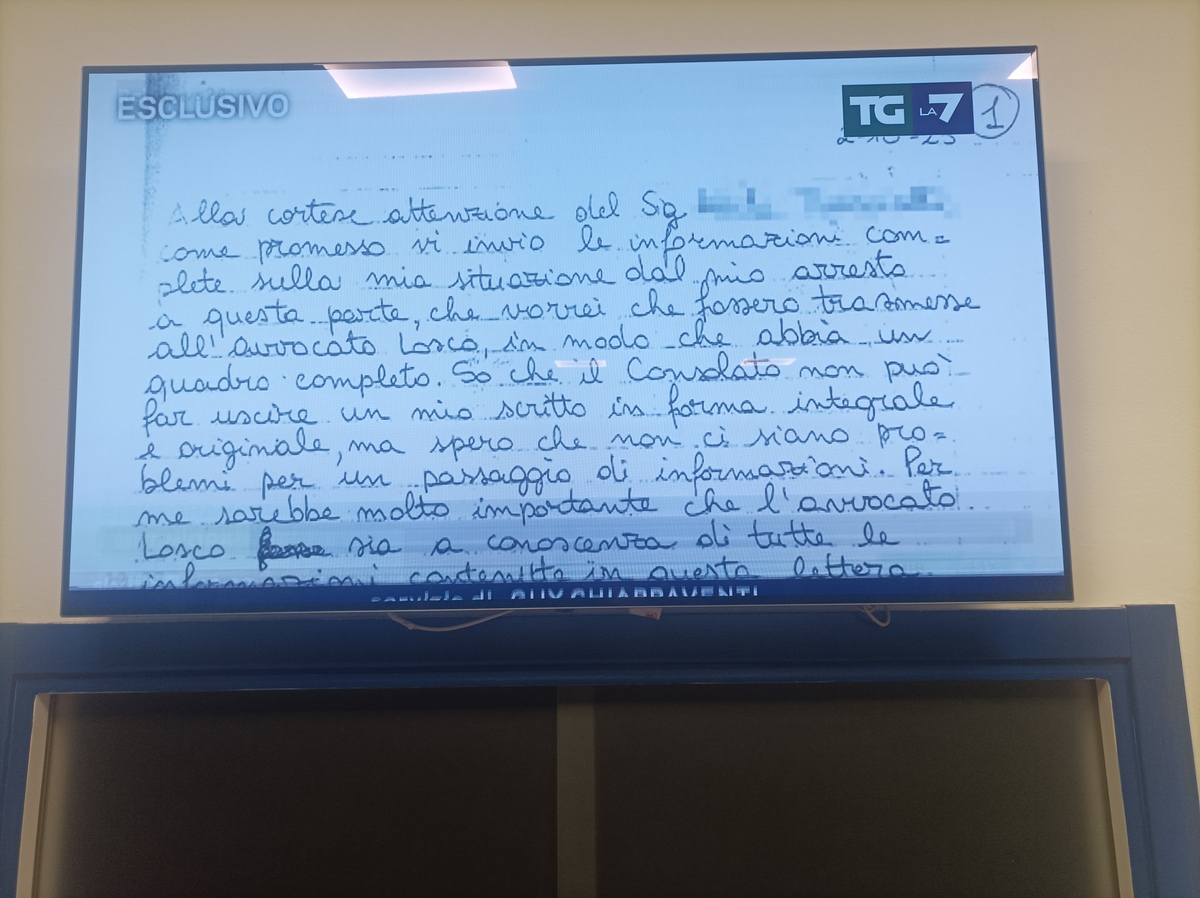 ESCLUSIVO
TG LA7
1
2-10-23
Alla cortese attenzione del Sig
come promesso vi invio le informazioni com=
plete sulla mia situazione dal mio arresto
a questa parte, che vorrei che fossero trasmesse
all'avvocato Losco, in modo che abbia un
quadro completo. So che il Consolato non può
far uscire un mio scritto in forma integrale
e originale, ma spero che non ci siano pro=
blemi per un passaggio di informazioni. Per
me sarebbe molto importante che l'avvocato
Losco sia a conoscenza di tutte le
informazioni contenute in questa lettera
servizio di GUY CHIAPPAVENTI